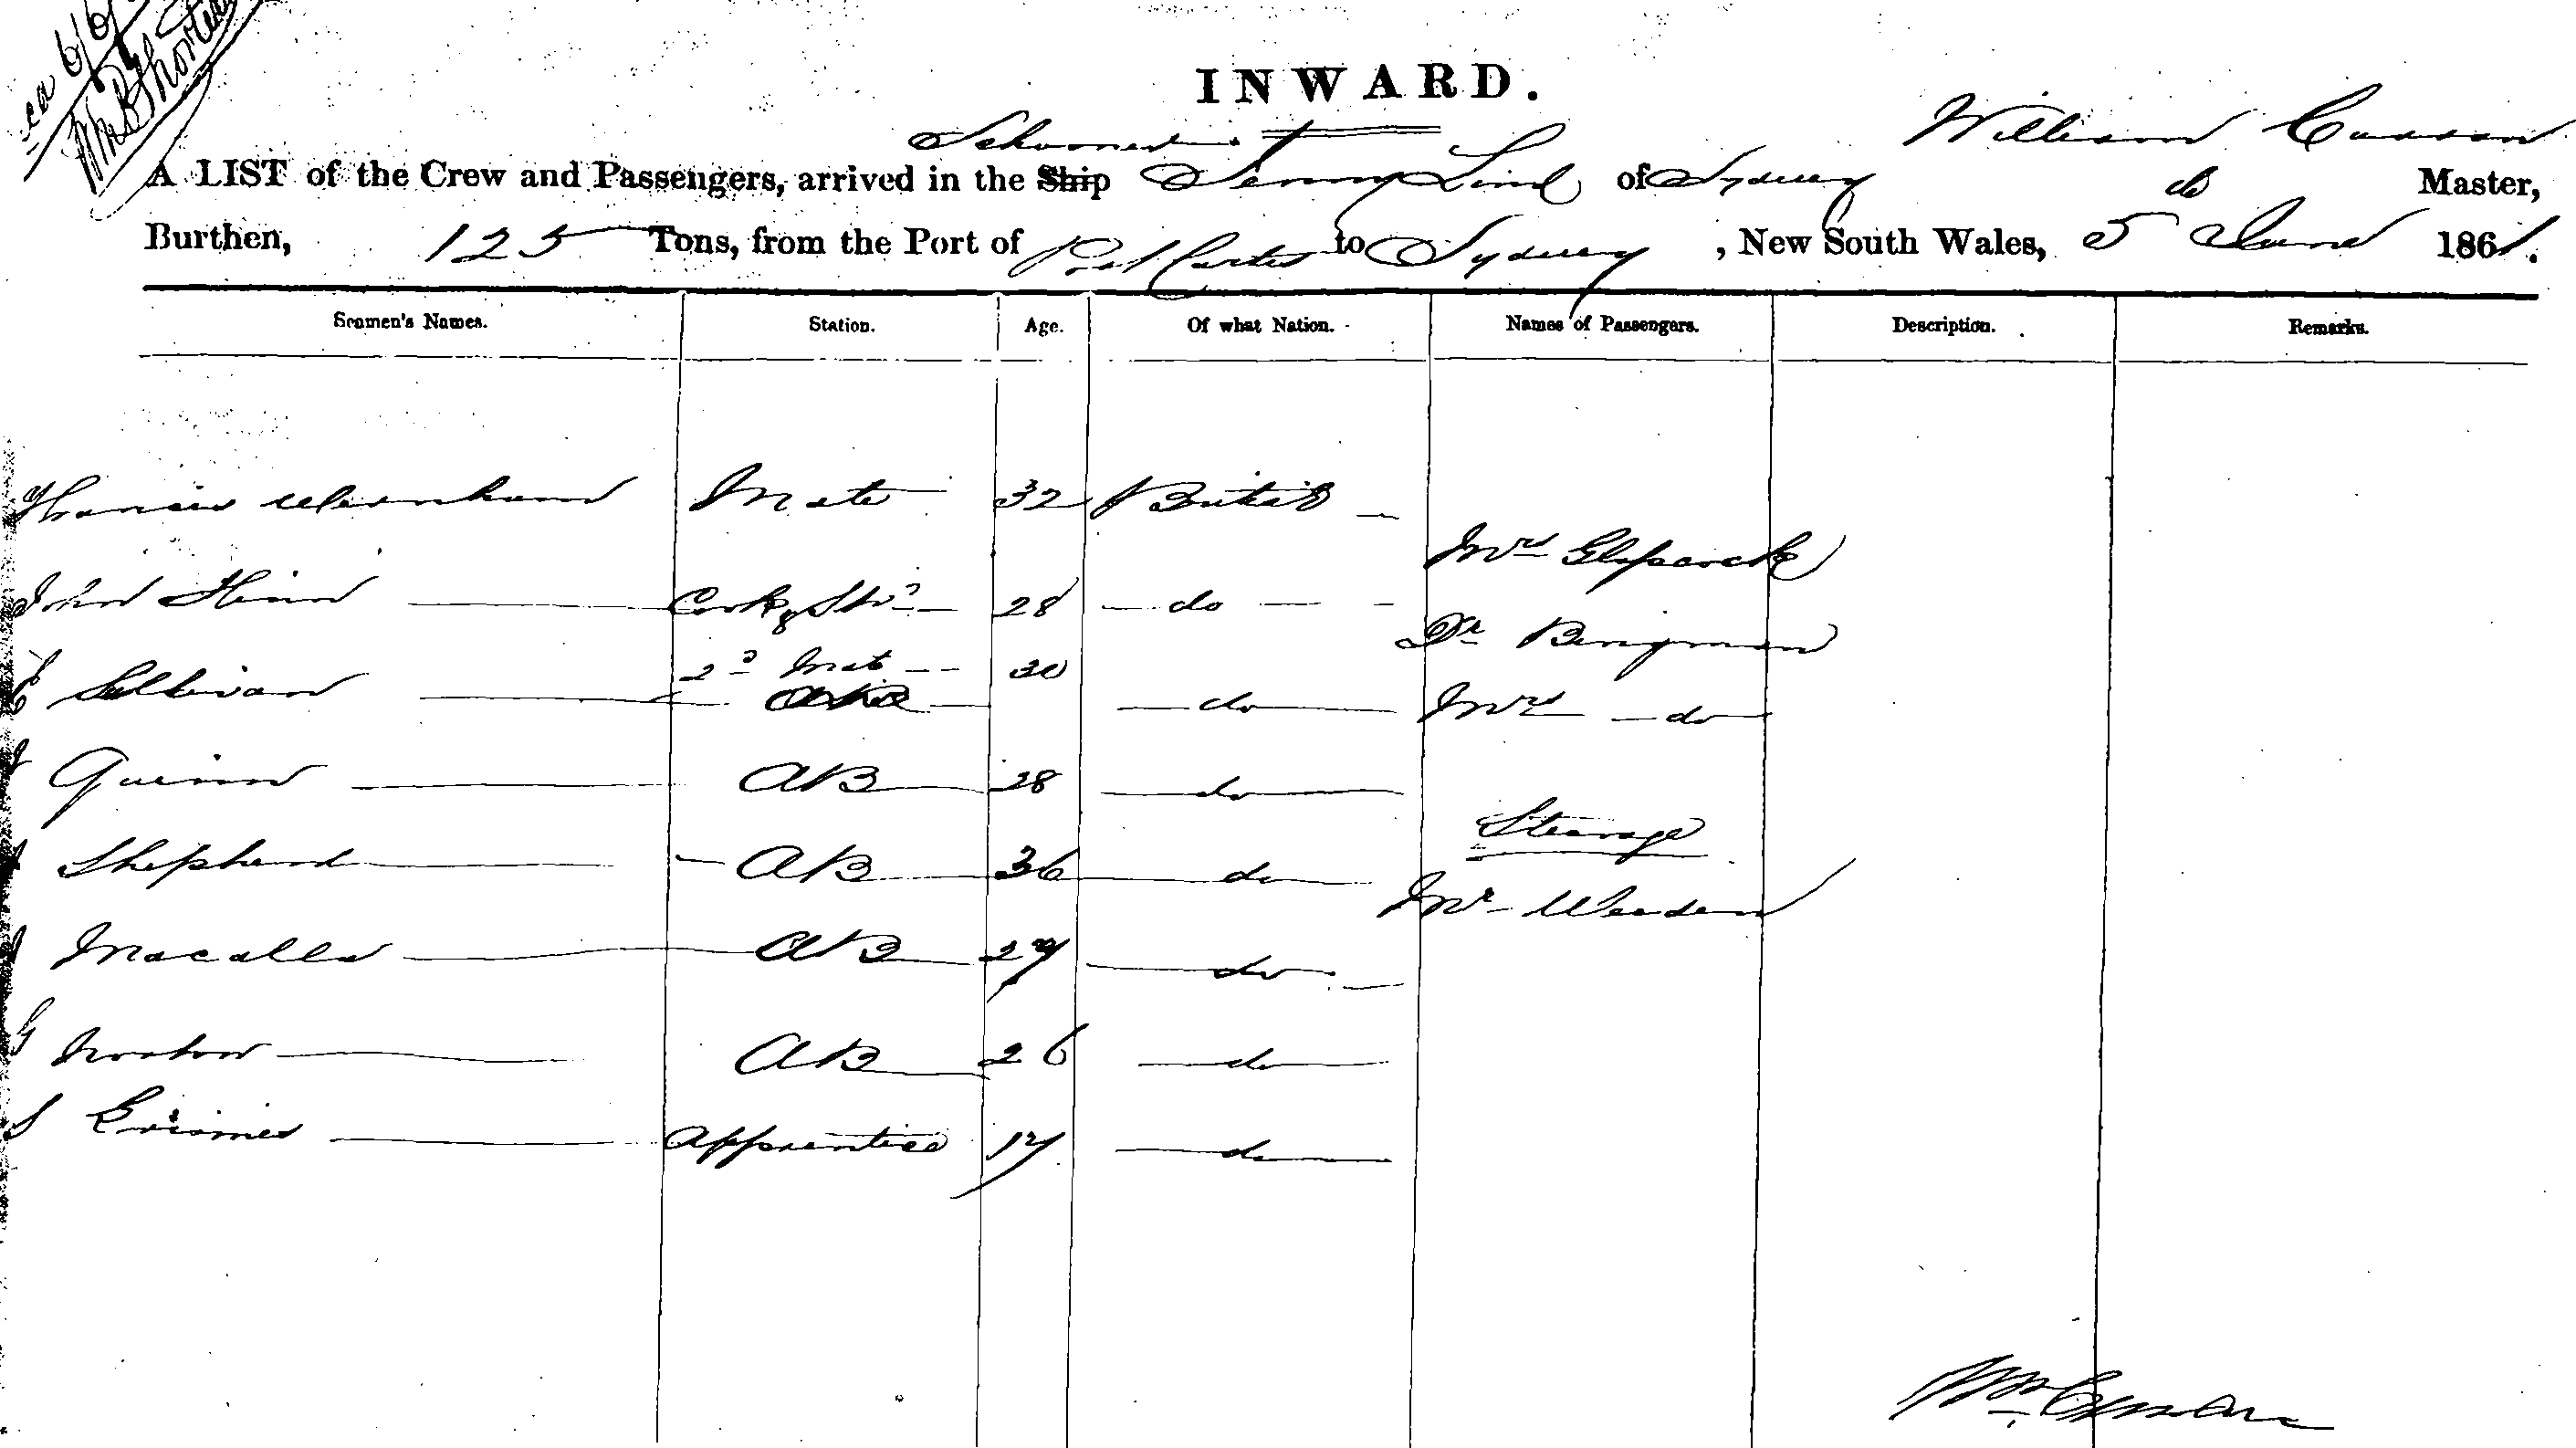 INWARD.
Schooner William
A LIST of the Crew and Passengers, arrived in the Ship Jenny Lind of Sydney Master,
Burthen, 125 Tons, from the Port of Port Curtis to Sydney, New South Wales, 5 June 1861.
Seamen's Names. Station. Age. Of what Nation. Names of Passengers. Description. Remarks.
Francis Mate 32 British
Mrs Glasscock
John Cook & Stwd 28 do
Dr Bingman
E Sullivan 2d Mate 30 do Mrs do
Quinn AB 28 do
Steerage
Shepherd AB 36 do
Mr Weeden
Macalla AB 27 do
G AB 26 do
S Apprentice 17 do
Wm